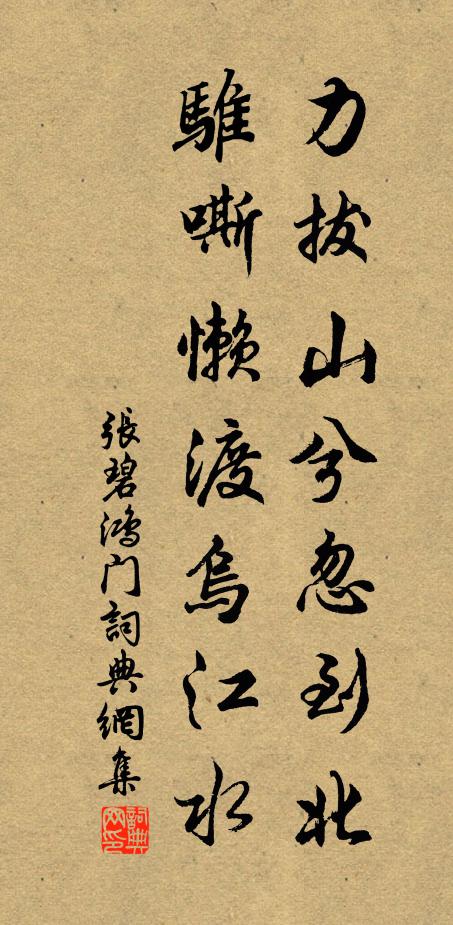 力拔山兮忽到此
騅嘶懶渡烏江水
張碧鴻门詞典網集
詞典网印